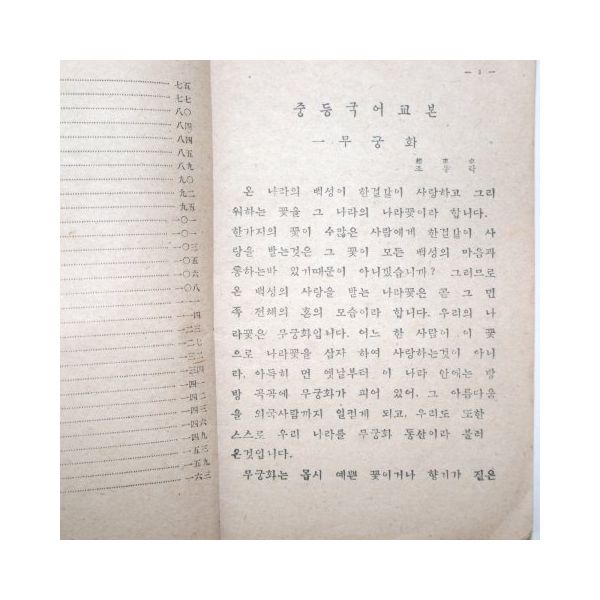 七五
七七
八〇
八四
八四
八五
八九
九〇
九二
九五
一〇一
一〇三
一〇五
一〇六
一〇八
一一
一一四
一二三
一二七
一三二
一三四
一四一
一四二
一四三
一四六
一四九
一五三
一五九
一六三
— 1 —
중등국어교본
一 무궁화
조동탁
온 나라의 백성이 한결같이 사랑하고 그리
워하는 꽃을 그 나라의 나라꽃이라 합니다.
한가지의 꽃이 수많은 사람에게 한결같이 사
랑을 받는것은 그 꽃이 모든 백성의 마음과
통하는바 있기때문이 아니겠습니까? 그러므로
온 백성의 사랑을 받는 나라꽃은 곧 그 면
족 전체의 혼의 모습이라 합니다. 우리의 나
라꽃은 무궁화입니다. 어느 한 사람이 이 꽃
으로 나라꽃을 삼자 하여 사랑하는것이 아니
라, 아득히 먼 옛날부터 이 나라 안에는 방
방 곡곡에 무궁화가 피어 있어, 그 아름다움
을 외국사람까지 일컫게 되고, 우리도 또한
스스로 우리 나라를 무궁화 동산이라 불러
온것입니다.
무궁화는 몹시 예쁜 꽃이거나 향기가 짙은